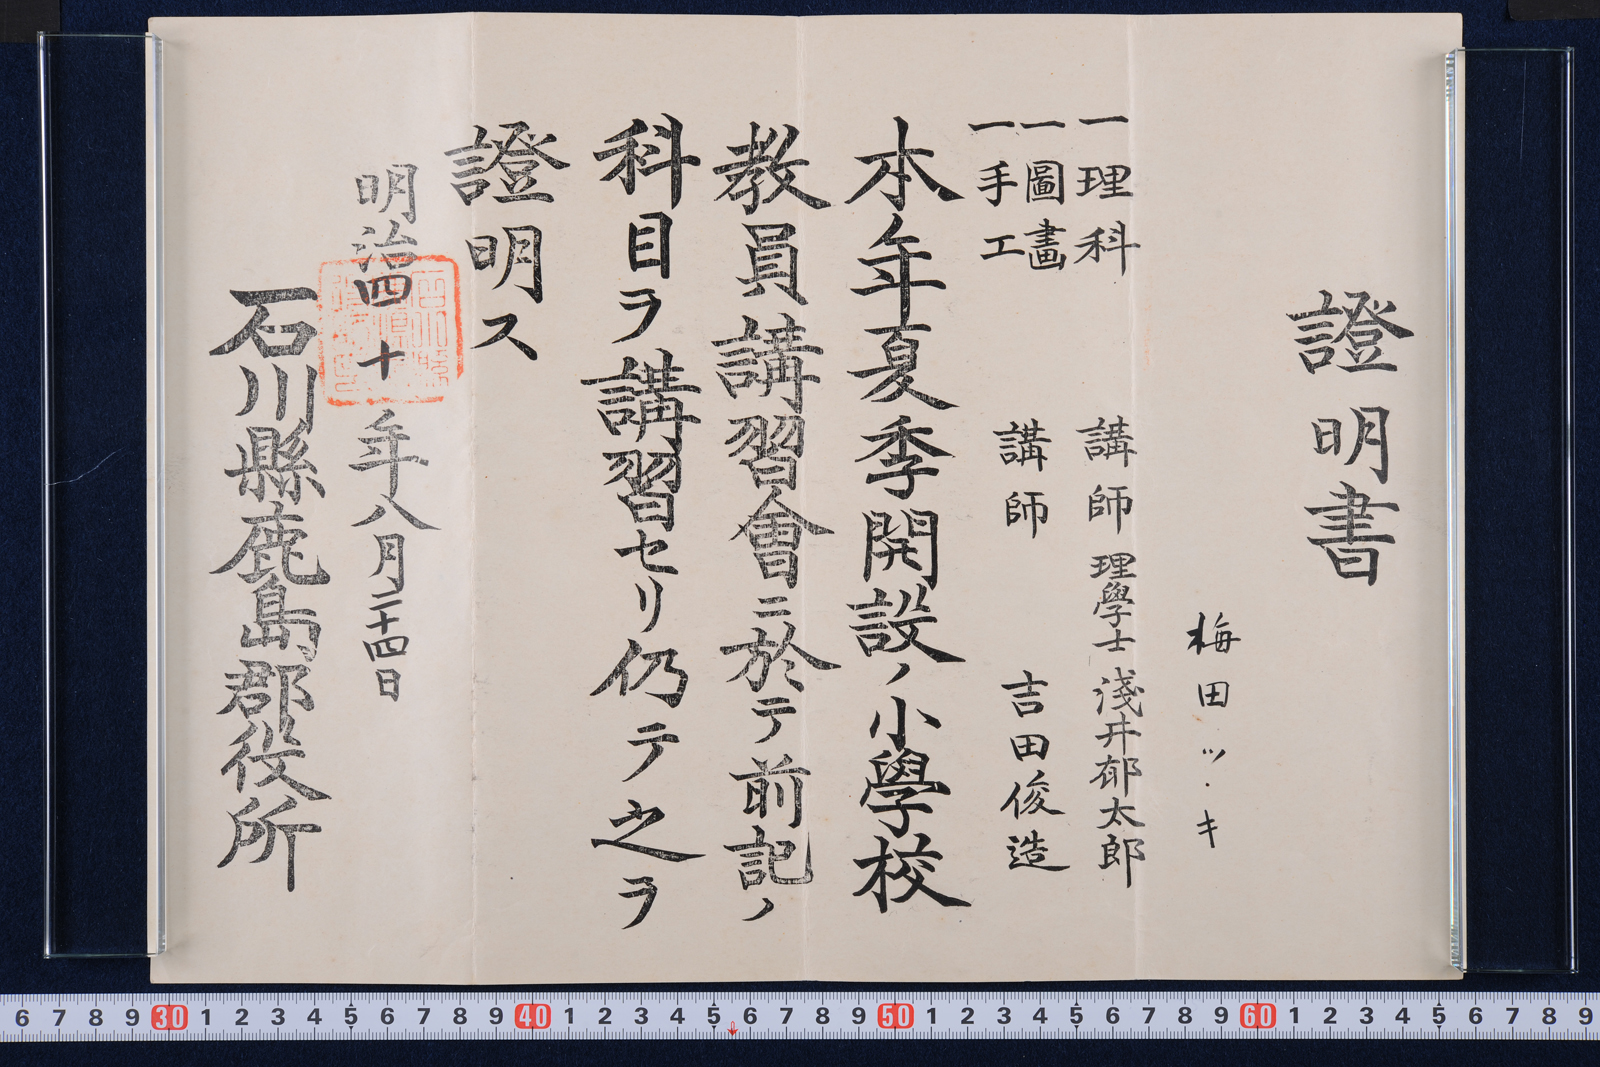 證明書
梅田ツキ
一理科 講師 理學士 淺井郁太郎
一圖畫
一手工 講師 吉田俊造
本年夏季開設ノ小學校
教員講習會ニ於テ前記ノ
科目ヲ講習セリ仍テ之ヲ
證明ス
明治四十年八月二十四日
石川縣鹿島郡役所
6 7 8 9 30 1 2 3 4 5 6 7 8 9 40 1 2 3 4 5 6 7 8 9 50 1 2 3 4 5 6 7 8 9 60 1 2 3 4 5 6 7 8 9